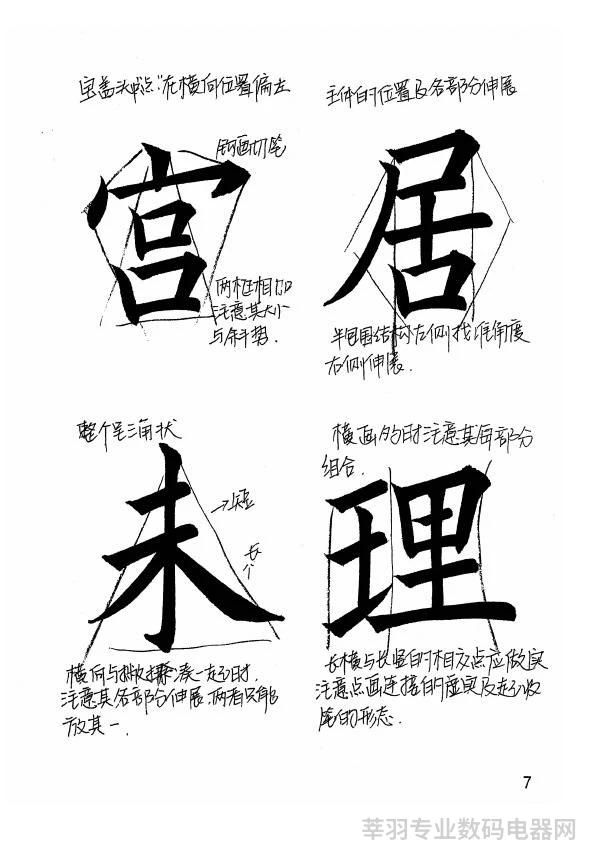 宝盖头"点"在横向位置偏左
宫
钩画切笔
两框相加
注意其大小
与斜势.
主体的位置及各部分伸展
居
半包围结构左侧找准角度
右侧伸展.
整个呈三角状
未
→短
长
个
横向与撇捺凑一起时.
注意其各部分伸展.两者只能
放其一.
横画多时注意其每部分
组合.
理
长横与长竖的相交点应做实
注意点画连接的虚实及起收
笔的形态.
7
莘羽专业数码电器网